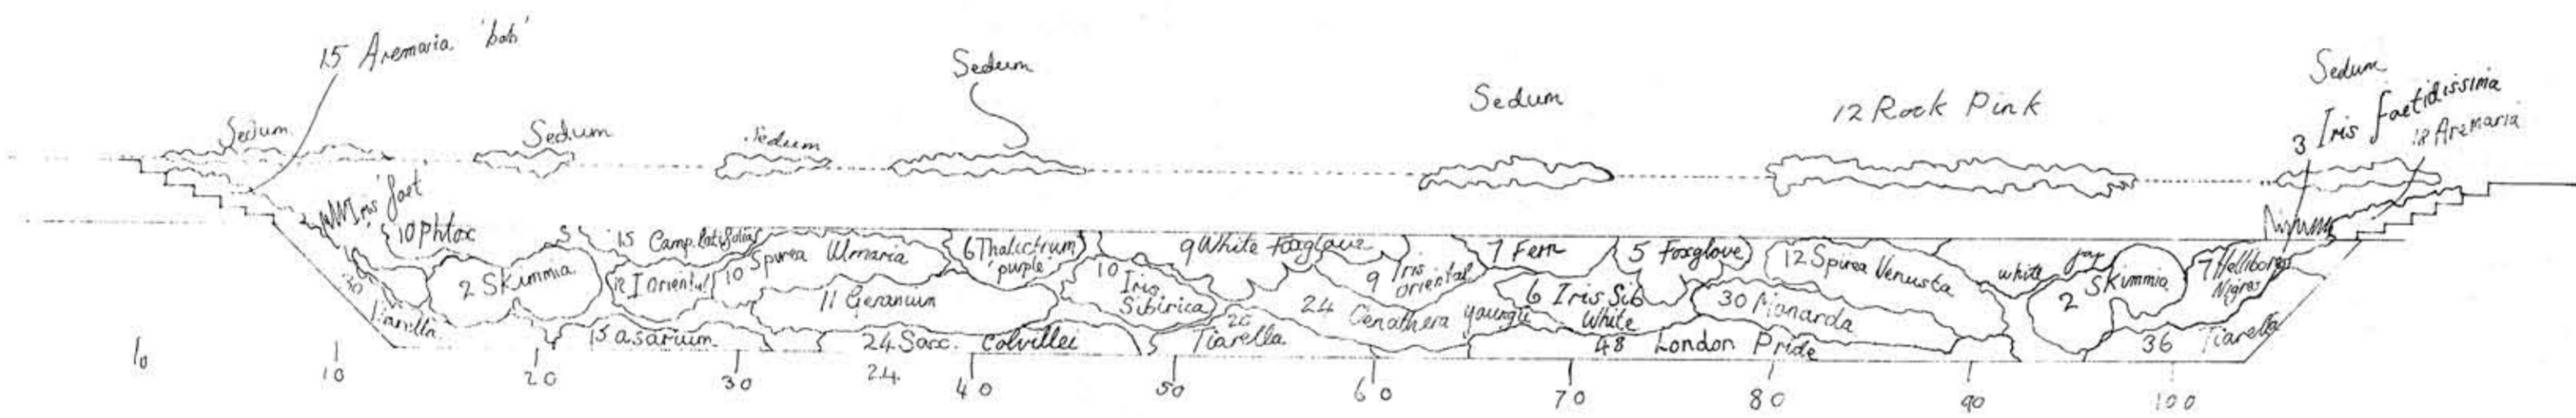 15 Aremaria 'bab'
Sedum
Sedum
Sedum
Sedum
Sedum
12 Rock Pink
Sedum
3 Iris faetidissima
12 Aremaria
Iris faet
10 Phlox
15 Camp. latifolia
Spirea Ulmaria
10
6 Thalictrum
purple
9 White Foxglove
9 Iris
oriental
7 Fern
5 Foxglove
12 Spirea Venusta
white
2 Skimmia
7 Hellibores
Nigras
2 Skimmia
12 I Oriental
11 Geranium
10
Iris
Sibirica
24 Oenathera youngii
6 Iris Sib
White
30 Monarda
30
Tiarella
15 asarium
24 Sax. Colvillei
20
Tiarella
48 London Pride
36 Tiarella
10
10
20
30
24
40
50
60
70
80
90
100